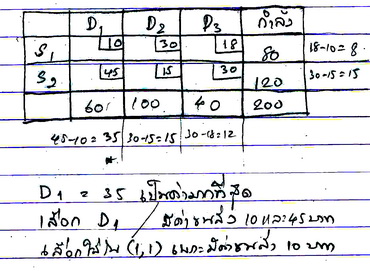 D1 D2 D3 กำลัง
S1 10 30 18 80 18-10= 8
S2 45 15 30 120 30-15= 15
60 100 40 200
45-10= 35 30-15=15 30-18=12
*
D1 = 35 เป็นค่ามากที่สุด
เลือก D1 มีค่าขนส่ง 10 และ 45 บาท
เลือกใส่ใน (1,1) เพราะมีค่าขนส่ง 10 บาท